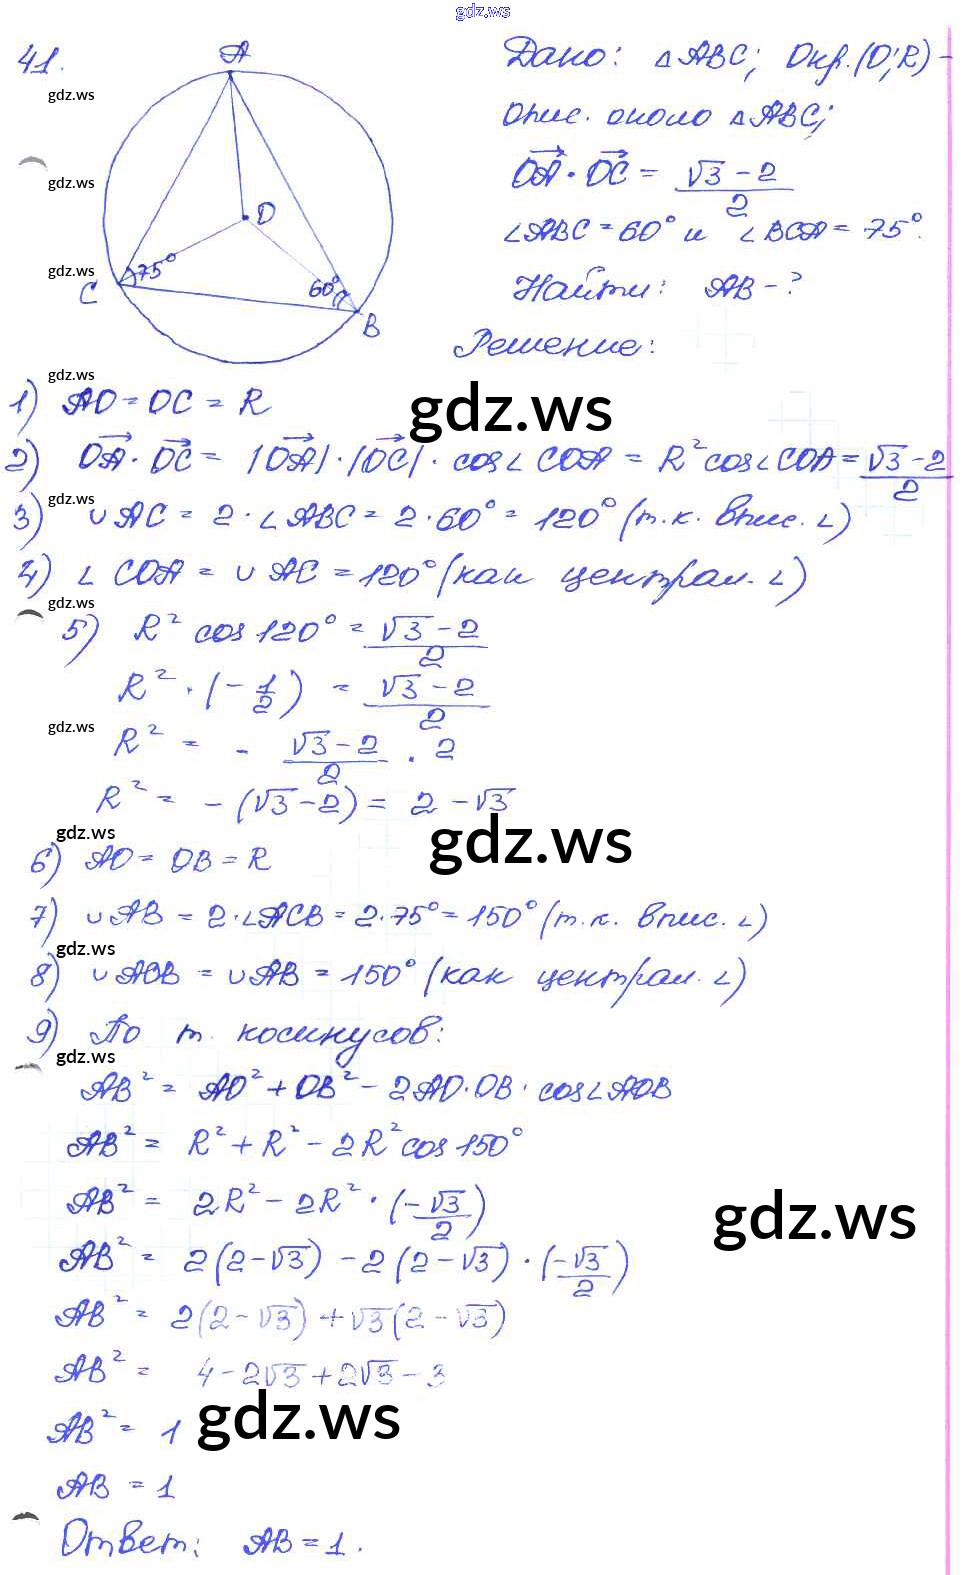 gdz.ws
41.
A
Дано: △ABC; Окр.(O;R) -
gdz.ws
опис. около △ABC;
gdz.ws
OA · OC = (√3 - 2)/2
O
∠ABC = 60° и ∠BCA = 75°.
gdz.ws
75°
60°
C
B
Найти: AB - ?
Решение:
gdz.ws
1) AO = OC = R
gdz.ws
2) OA · OC = |OA| · |OC| · cos∠COA = R² cos∠COA = (√3 - 2)/2
gdz.ws
3) ∪AC = 2 · ∠ABC = 2 · 60° = 120° (т.к. впис. ∠)
4) ∠COA = ∪AC = 120° (как централ. ∠)
gdz.ws
5) R² cos 120° = (√3 - 2)/2
R² · (-1/2) = (√3 - 2)/2
gdz.ws
R² = - (√3 - 2)/2 · 2
R² = - (√3 - 2) = 2 - √3
gdz.ws
gdz.ws
6) AO = OB = R
7) ∪AB = 2 · ∠ACB = 2 · 75° = 150° (т.к. впис. ∠)
gdz.ws
8) ∪AOB = ∪AB = 150° (как централ. ∠)
9) По т. косинусов:
gdz.ws
AB² = AO² + OB² - 2AO · OB · cos∠AOB
AB² = R² + R² - 2R² cos 150°
AB² = 2R² - 2R² · (-√3/2)
gdz.ws
AB² = 2(2 - √3) - 2(2 - √3) · (-√3/2)
AB² = 2(2 - √3) + √3(2 - √3)
AB² = 4 - 2√3 + 2√3 - 3
gdz.ws
AB² = 1
AB = 1
Ответ: AB = 1.